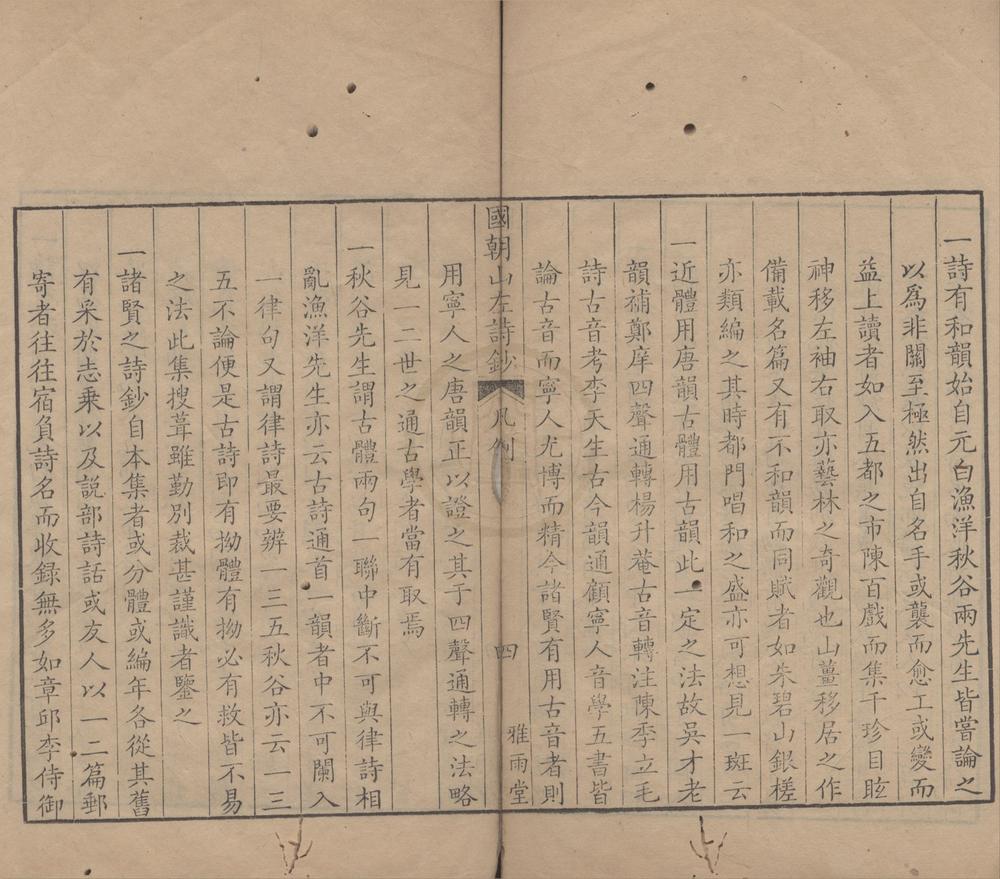 一詩有和韻始自元白漁洋秋谷兩先生皆嘗論之
以爲非關至極然出自名手或襲而愈工或變而
益上讀者如入五都之市陳百戲而集千珍目眩
神移左袖右取亦藝林之奇觀也山薑移居之作
備載名篇又有不和韻而同賦者如朱碧山銀槎
亦類編之其時都門唱和之盛亦可想見一斑云
一近體用唐韻古體用古韻此一定之法故吳才老
韻補鄭庠四聲通轉楊升菴古音轉注陳季立毛
詩古音考李天生古今韻通顧寧人音學五書皆
論古音而寧人尤博而精今諸賢有用古音者則
國朝山左詩鈔 凡例 四 雅雨堂
用寧人之唐韻正以證之其于四聲通轉之法略
見一二世之通古學者當有取焉
一秋谷先生謂古體兩句一聯中斷不可與律詩相
亂漁洋先生亦云古詩通首一韻者中不可闌入
一律句又謂律詩最要辨一三五秋谷亦云一三
五不論便是古詩即有拗體有拗必有救皆不易
之法此集搜葺雖勤別裁甚謹識者鑒之
一諸賢之詩鈔自本集者或分體或編年各從其舊
有采於志乘以及説部詩話或友人以一二篇郵
寄者往往宿負詩名而收録無多如章邱李侍御